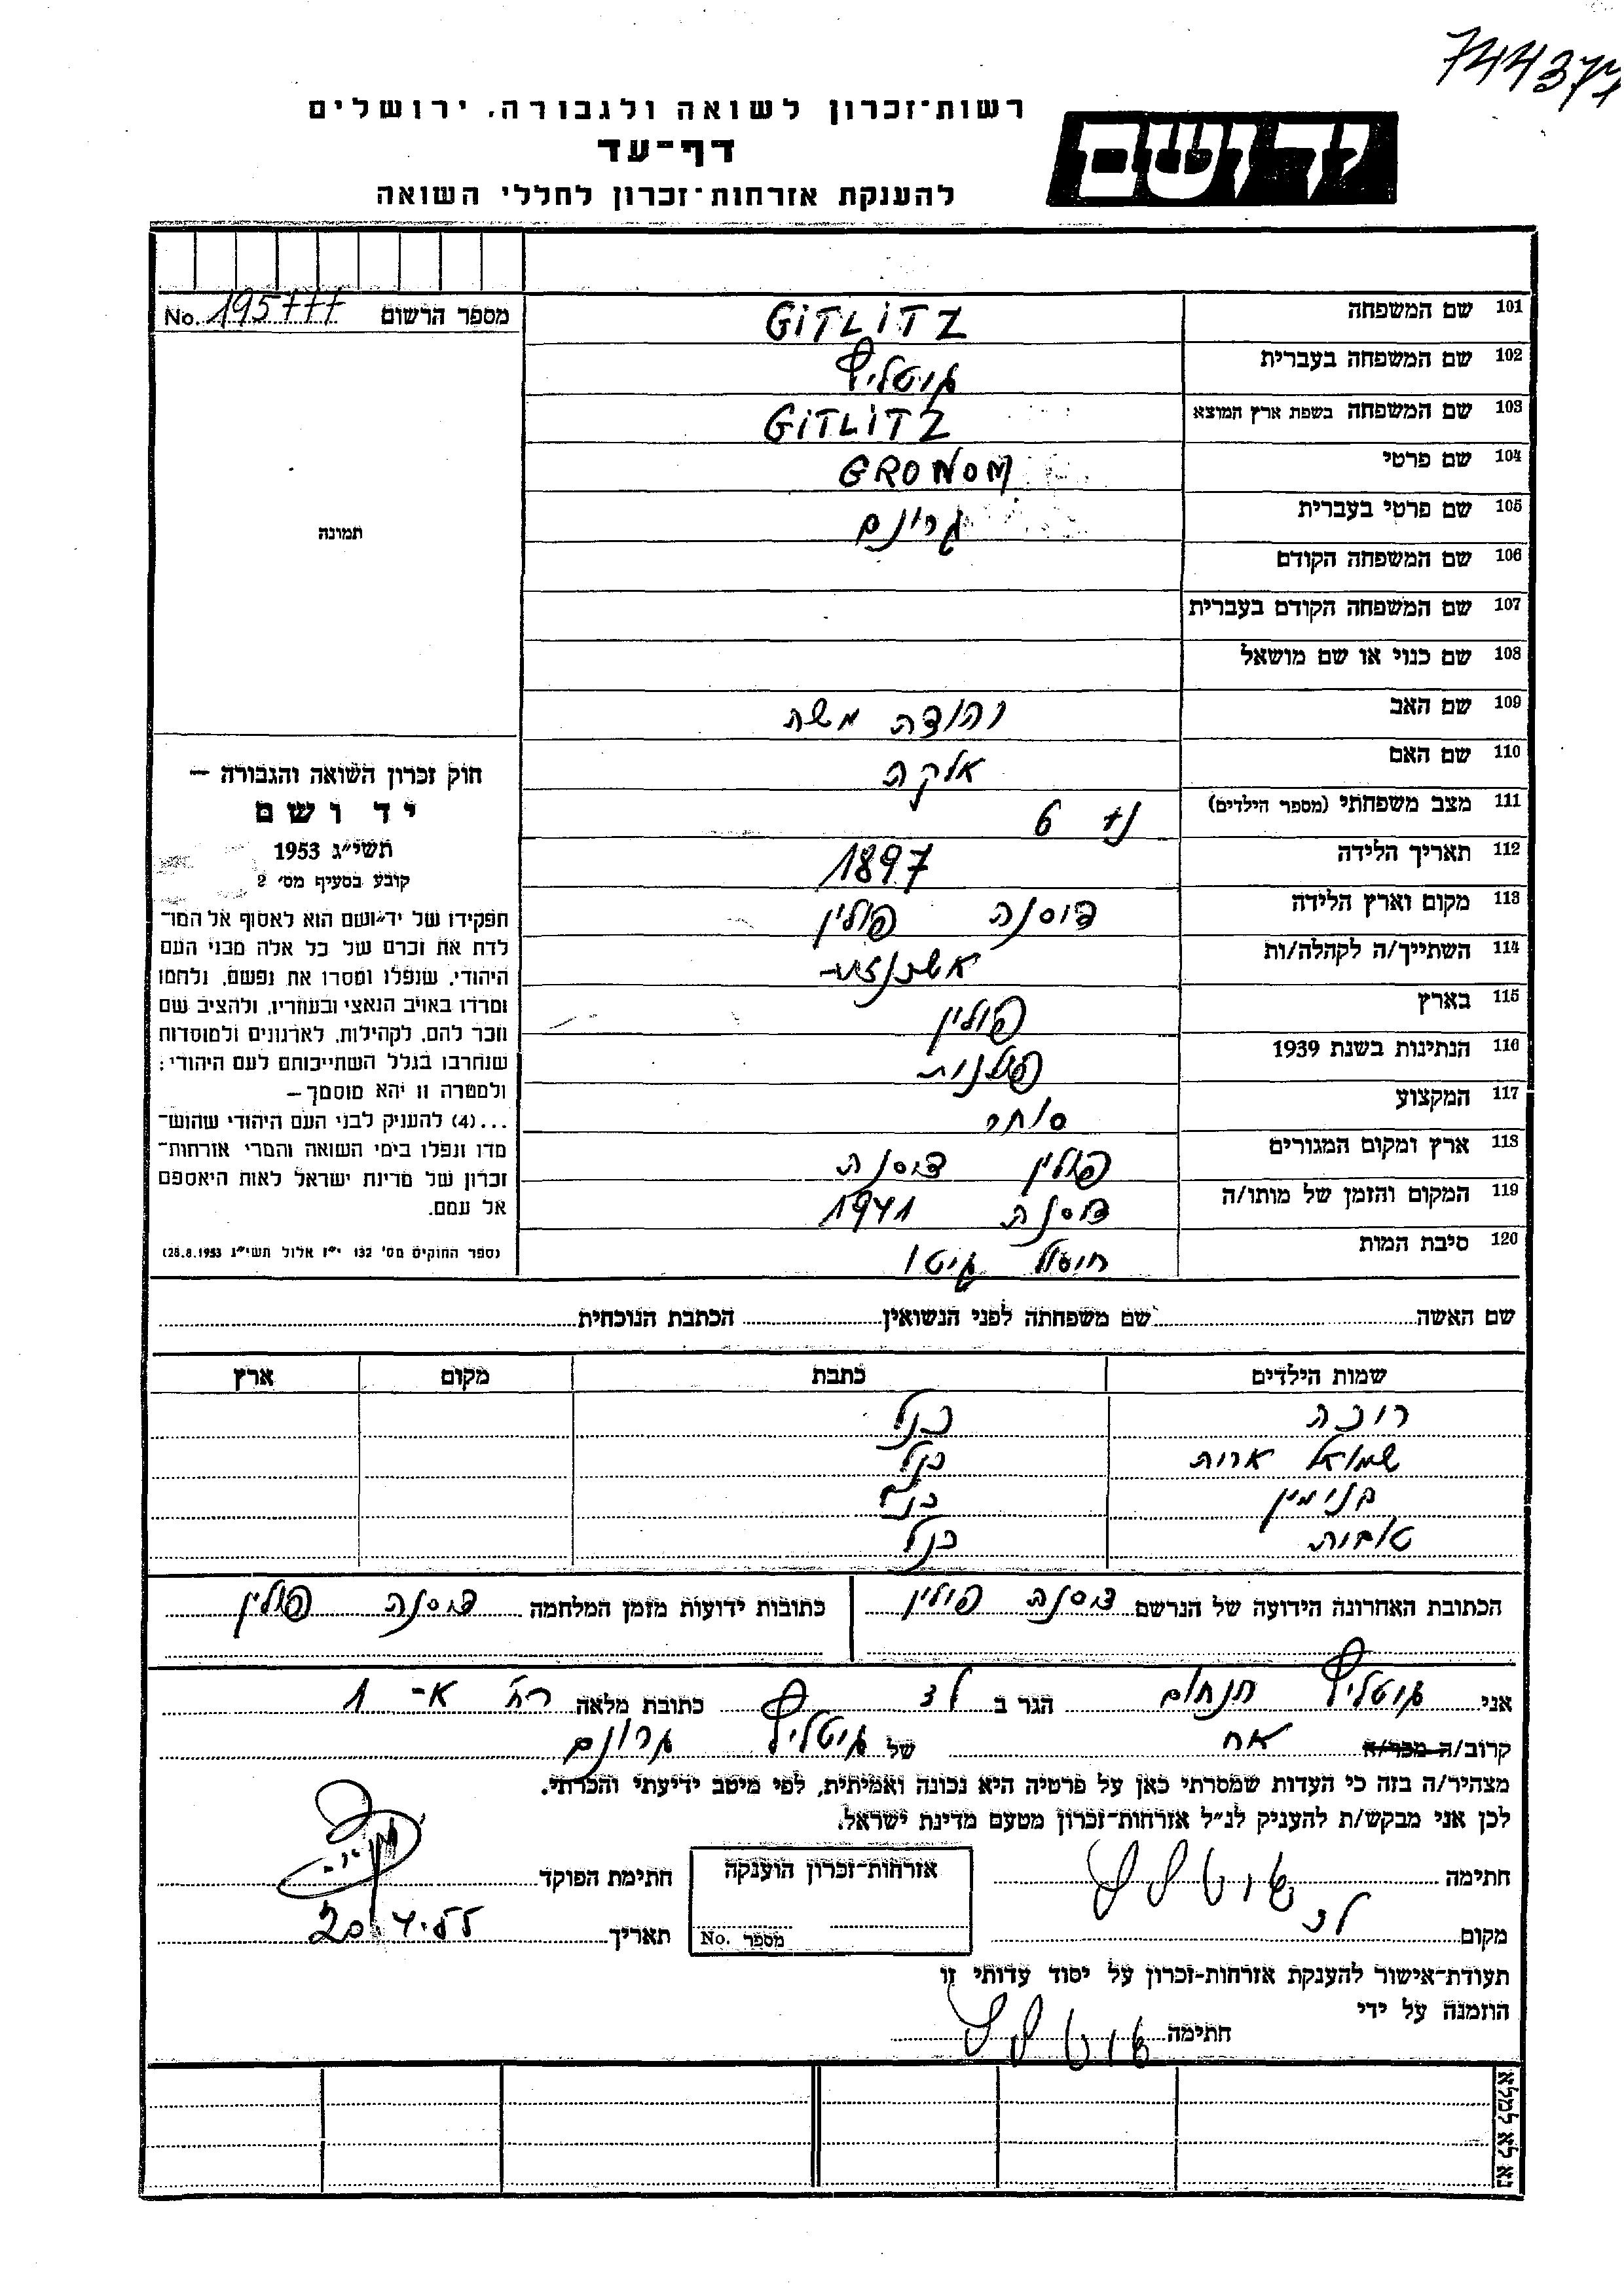 744377
רשות-זכרון לשואה ולגבורה, ירושלים
דף-עד
להענקת אזרחות-זכרון לחללי השואה
יד ושם
מספר הרשום No. 195777
101 שם המשפחה GITLITZ
102 שם המשפחה בעברית גיטליץ
103 שם המשפחה בשפת ארץ המוצא GITLITZ
104 שם פרטי GRONOM
105 שם פרטי בעברית גרונם
106 שם המשפחה הקודם
107 שם המשפחה הקודם בעברית
108 שם כנוי או שם מושאל
109 שם האב יהודה משה
110 שם האם אלקה
111 מצב משפחתי (מספר הילדים) נ+ 6
112 תאריך הלידה 1897
113 מקום וארץ הלידה פולין
114 השתייך/ה לקהלה/ות
115 בארץ פולין
116 הנתינות בשנת 1939 פולנית
117 המקצוע סוחר
118 ארץ ומקום המגורים פולין
119 המקום והזמן של מותו/ה 1941
120 סיבת המות חיסול גיטו
תמונה
חוק זכרון השואה והגבורה –
יד ושם
תשי״ג 1953
קובע בסעיף מס׳ 2
תפקידו של יד-ושם הוא לאסוף אל המו־
לדת את זכרם של כל אלה מבני העם
היהודי, שנפלו ומסרו את נפשם, נלחמו
ומרדו באויב הנאצי ובעוזריו, ולהציב שם
וזכר להם, לקהילות, לארגונים ולמוסדות
שנחרבו בגלל השתייכותם לעם היהודי;
ולמטרה זו יהא מוסמך –
...(4) להעניק לבני העם היהודי שהוש־
מדו ונפלו בימי השואה והמרי אזרחות-
זכרון של מדינת ישראל לאות היאספם
אל עמם.
(ספר החוקים מס׳ 132 י״ז אלול תשי״ג 28.8.1953)
שם האשה שם משפחתה לפני הנשואין הכתבת הנוכחית
שמות הילדים כתבת מקום ארץ
כנ״ל
שמואל כנ״ל
בנימין כנ״ל
כנ״ל
הכתובת האחרונה הידועה של הנרשם פולין
כתובות ידועות מזמן המלחמה פולין
אני גיטליץ תנחום הגר ב לוד כתובת מלאה
קרוב/ה מכר/ה אח של גיטליץ גרונם
מצהיר/ה בזה כי העדות שמסרתי כאן על פרטיה היא נכונה ואמיתית, לפי מיטב ידיעתי והכרתי.
לכן אני מבקש/ת להעניק לנ״ל אזרחות-זכרון מטעם מדינת ישראל.
חתימה גיטליץ
אזרחות-זכרון הוענקה
מספר No.
חתימת הפוקד
מקום לוד
תאריך 20.4.55
תעודת-אישור להענקת אזרחות-זכרון על יסוד עדותי זו
הוזמנה על ידי
חתימה גיטליץ
נא לא למלא